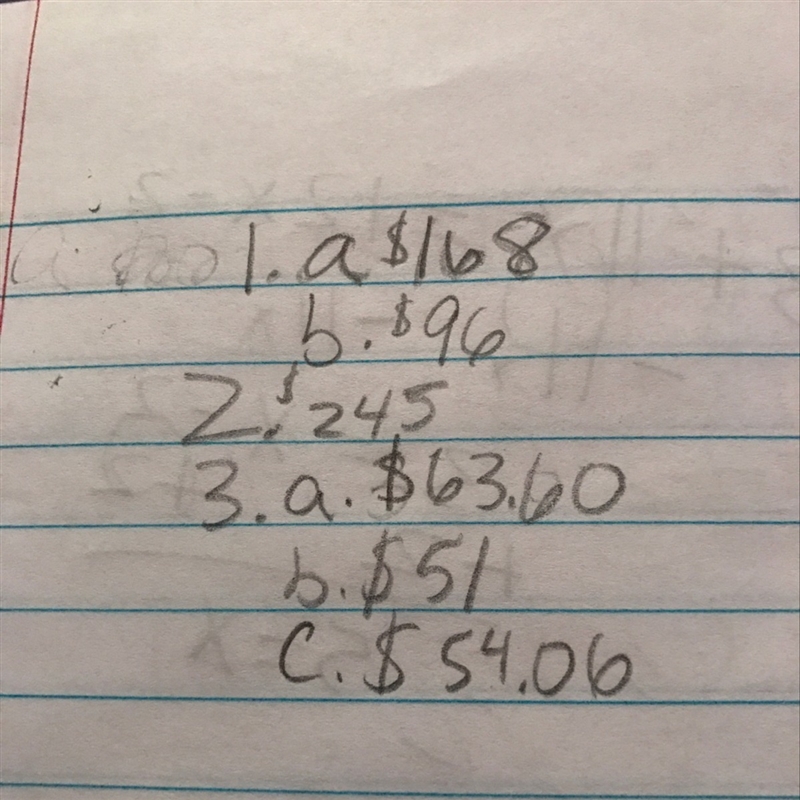 1. a $168
b. $96
2. $245
3. a. $63.60
b. $51
c. $54.06